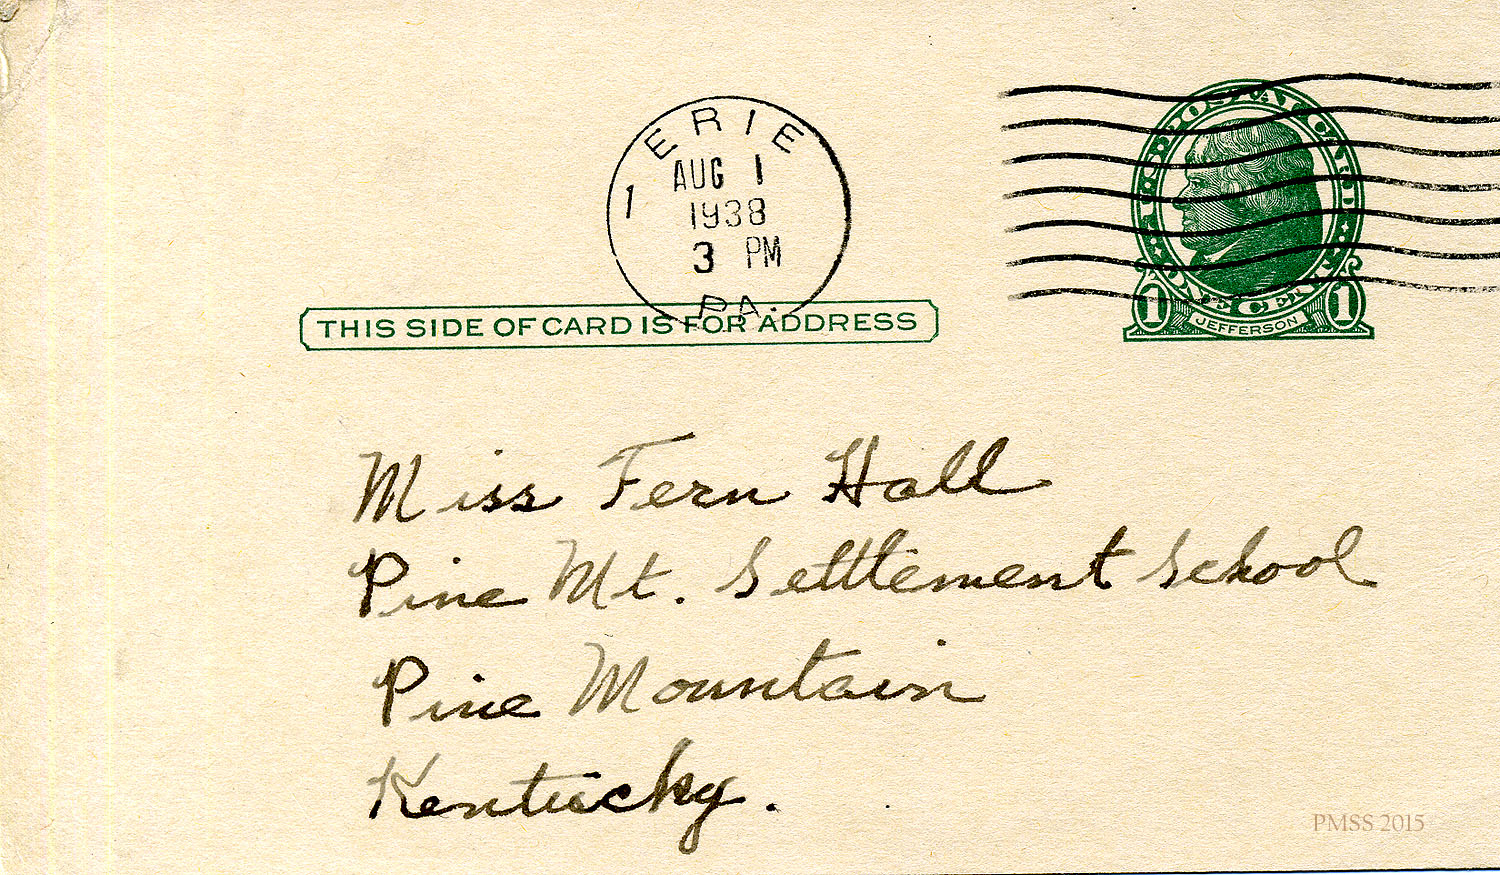 ERIE
AUG 1
1 1938
3 PM
PA.
U·S·POSTAL CARD
ONE CENT
1 JEFFERSON 1
THIS SIDE OF CARD IS FOR ADDRESS
Miss Fern Hall
Pine Mt. Settlement School
Pine Mountain
Kentucky.
PMSS 2015